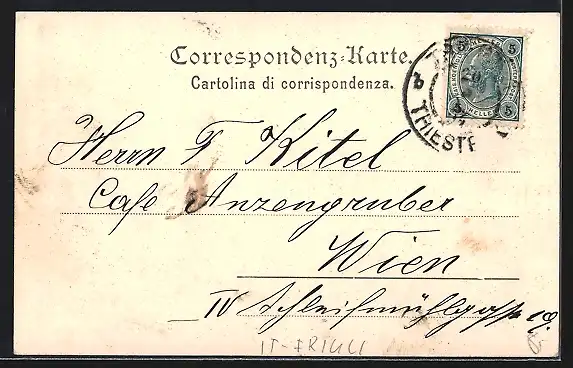 Correspondenz-Karte.
Cartolina di corrispondenza.
5 5
5 5
HELLER
TRIESTE
Herrn F Kitel
Cafe Anzengruber
Wien
IV Schleifmühlgasse 19.
IT-FRIULI